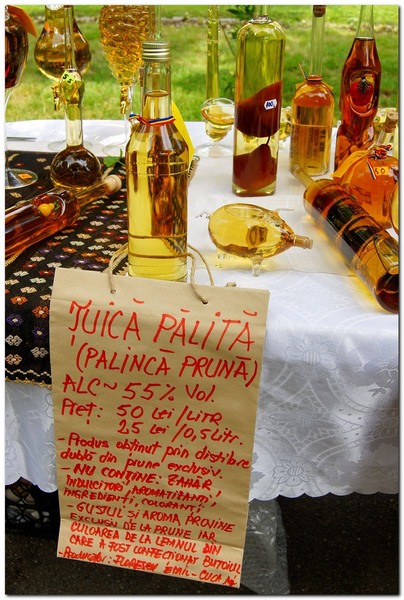 ȚUICĂ PĂLITĂ
(PALINCĂ PRUNĂ)
ALC ~ 55% Vol.
Preț: 50 Lei/LITR
25 Lei /0,5Litr.
- Produs obținut prin distilare
dublă din prune exclusiv.
- NU CONȚINE: ZAHĂR
ÎNDULCITORI, AROMATIZANȚI,
INGREDIENȚI, COLORANȚI
- GUSTUL ȘI AROMA PROVINE
EXCLUSIV DE LA PRUNE IAR
CULOAREA DE LA LEMNUL DIN
CARE A FOST CONFECȚIONAT BUTOIUL
- Producător: FLORESCU EMIL - CUCA